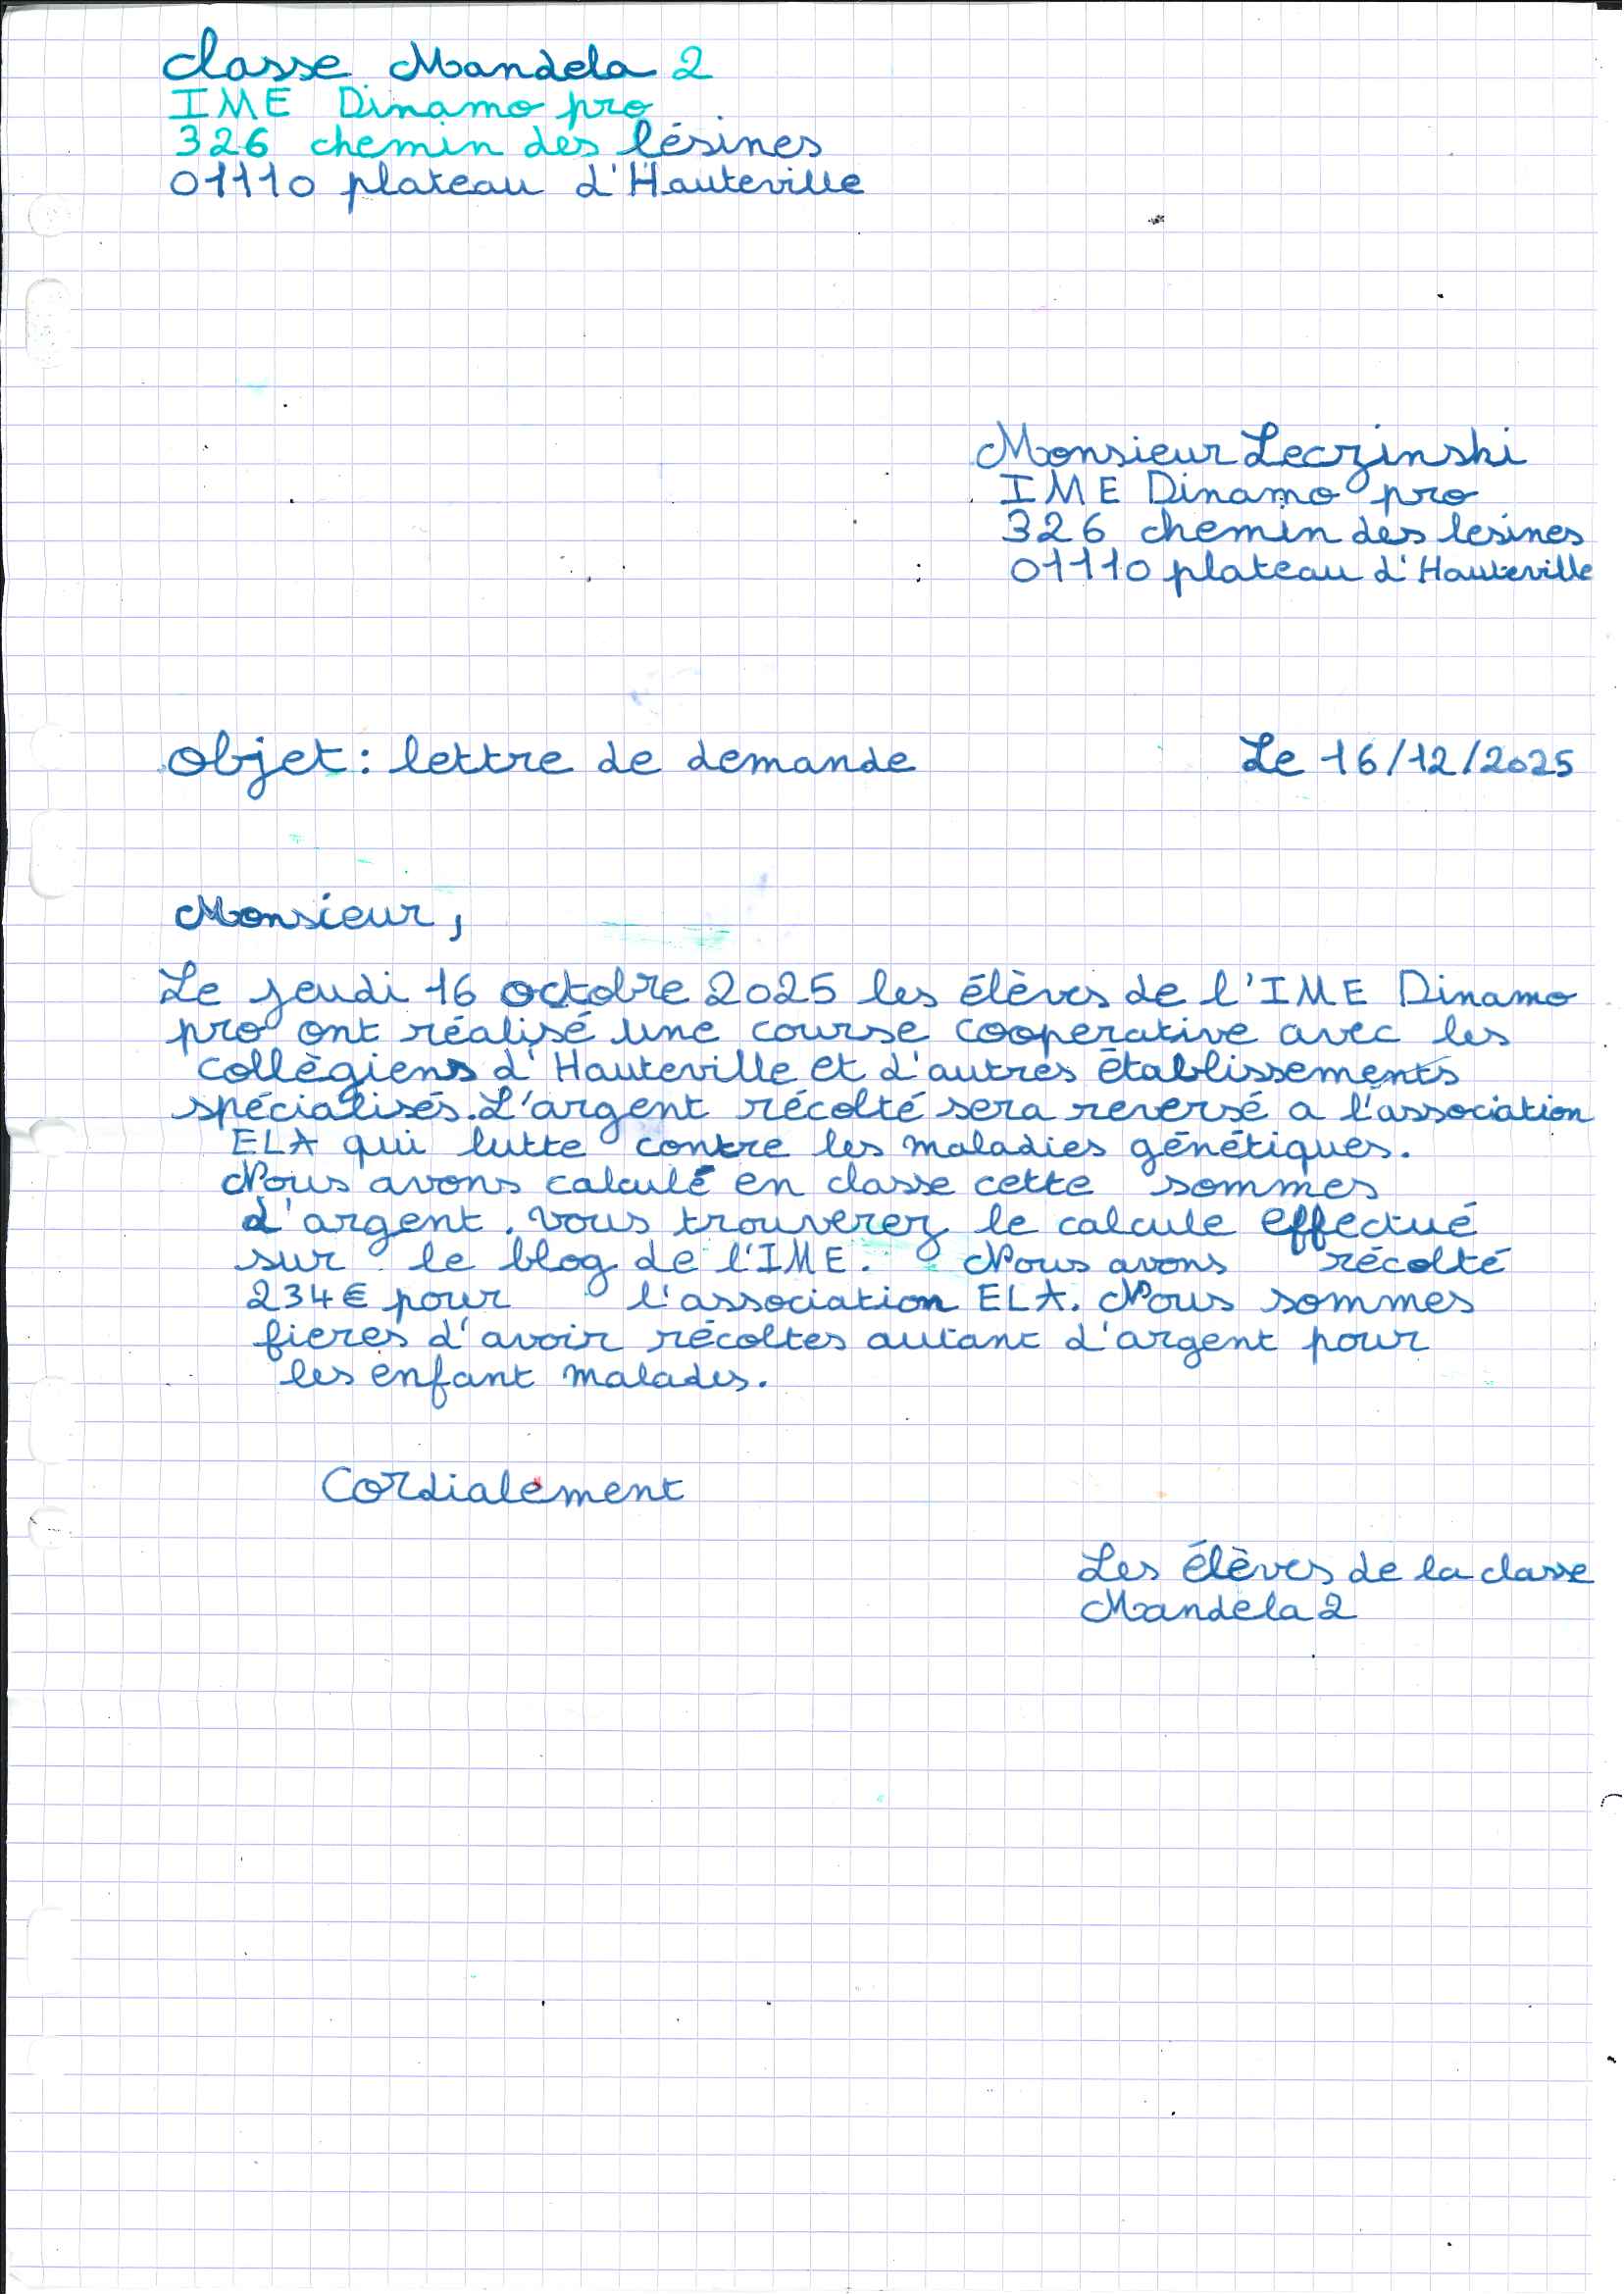 classe Mandela 2
IME Dinamo pro
326 chemin des lésines
01110 plateau d'Hauteville
Monsieur Leczinski
IME Dinamo pro
326 chemin des lesines
01110 plateau d'Hauteville
Objet : lettre de demande Le 16/12/2025
Monsieur,
Le jeudi 16 octobre 2025 les élèves de l'IME Dinamo
pro ont réalisé une course cooperative avec les
collègiens d'Hauteville et d'autres établissements
spécialisés. L'argent récolté sera reversé a l'association
ELA qui lutte contre les maladies génétiques.
Nous avons calculé en classe cette sommes
d'argent. vous trouverez le calcule effectué
sur le blog de l'IME. Nous avons récolté
234€ pour l'association ELA. Nous sommes
fieres d'avoir récoltes autant d'argent pour
les enfant malades.
Cordialement
Les élèves de la classe
Mandela 2